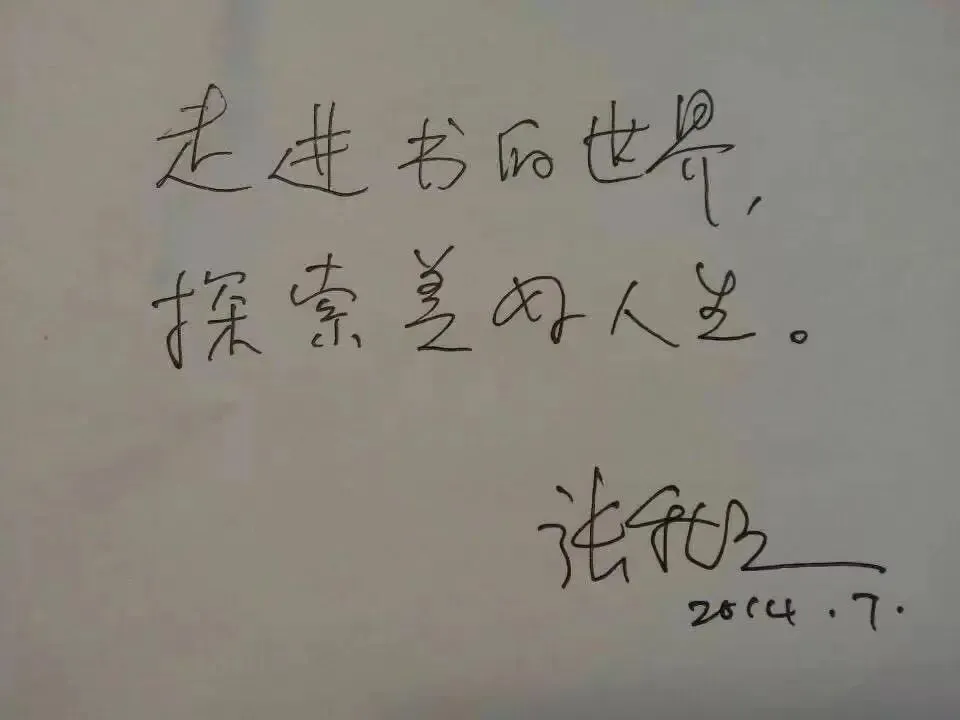 走进书的世界,
探索美好人生。
张
2014.7.